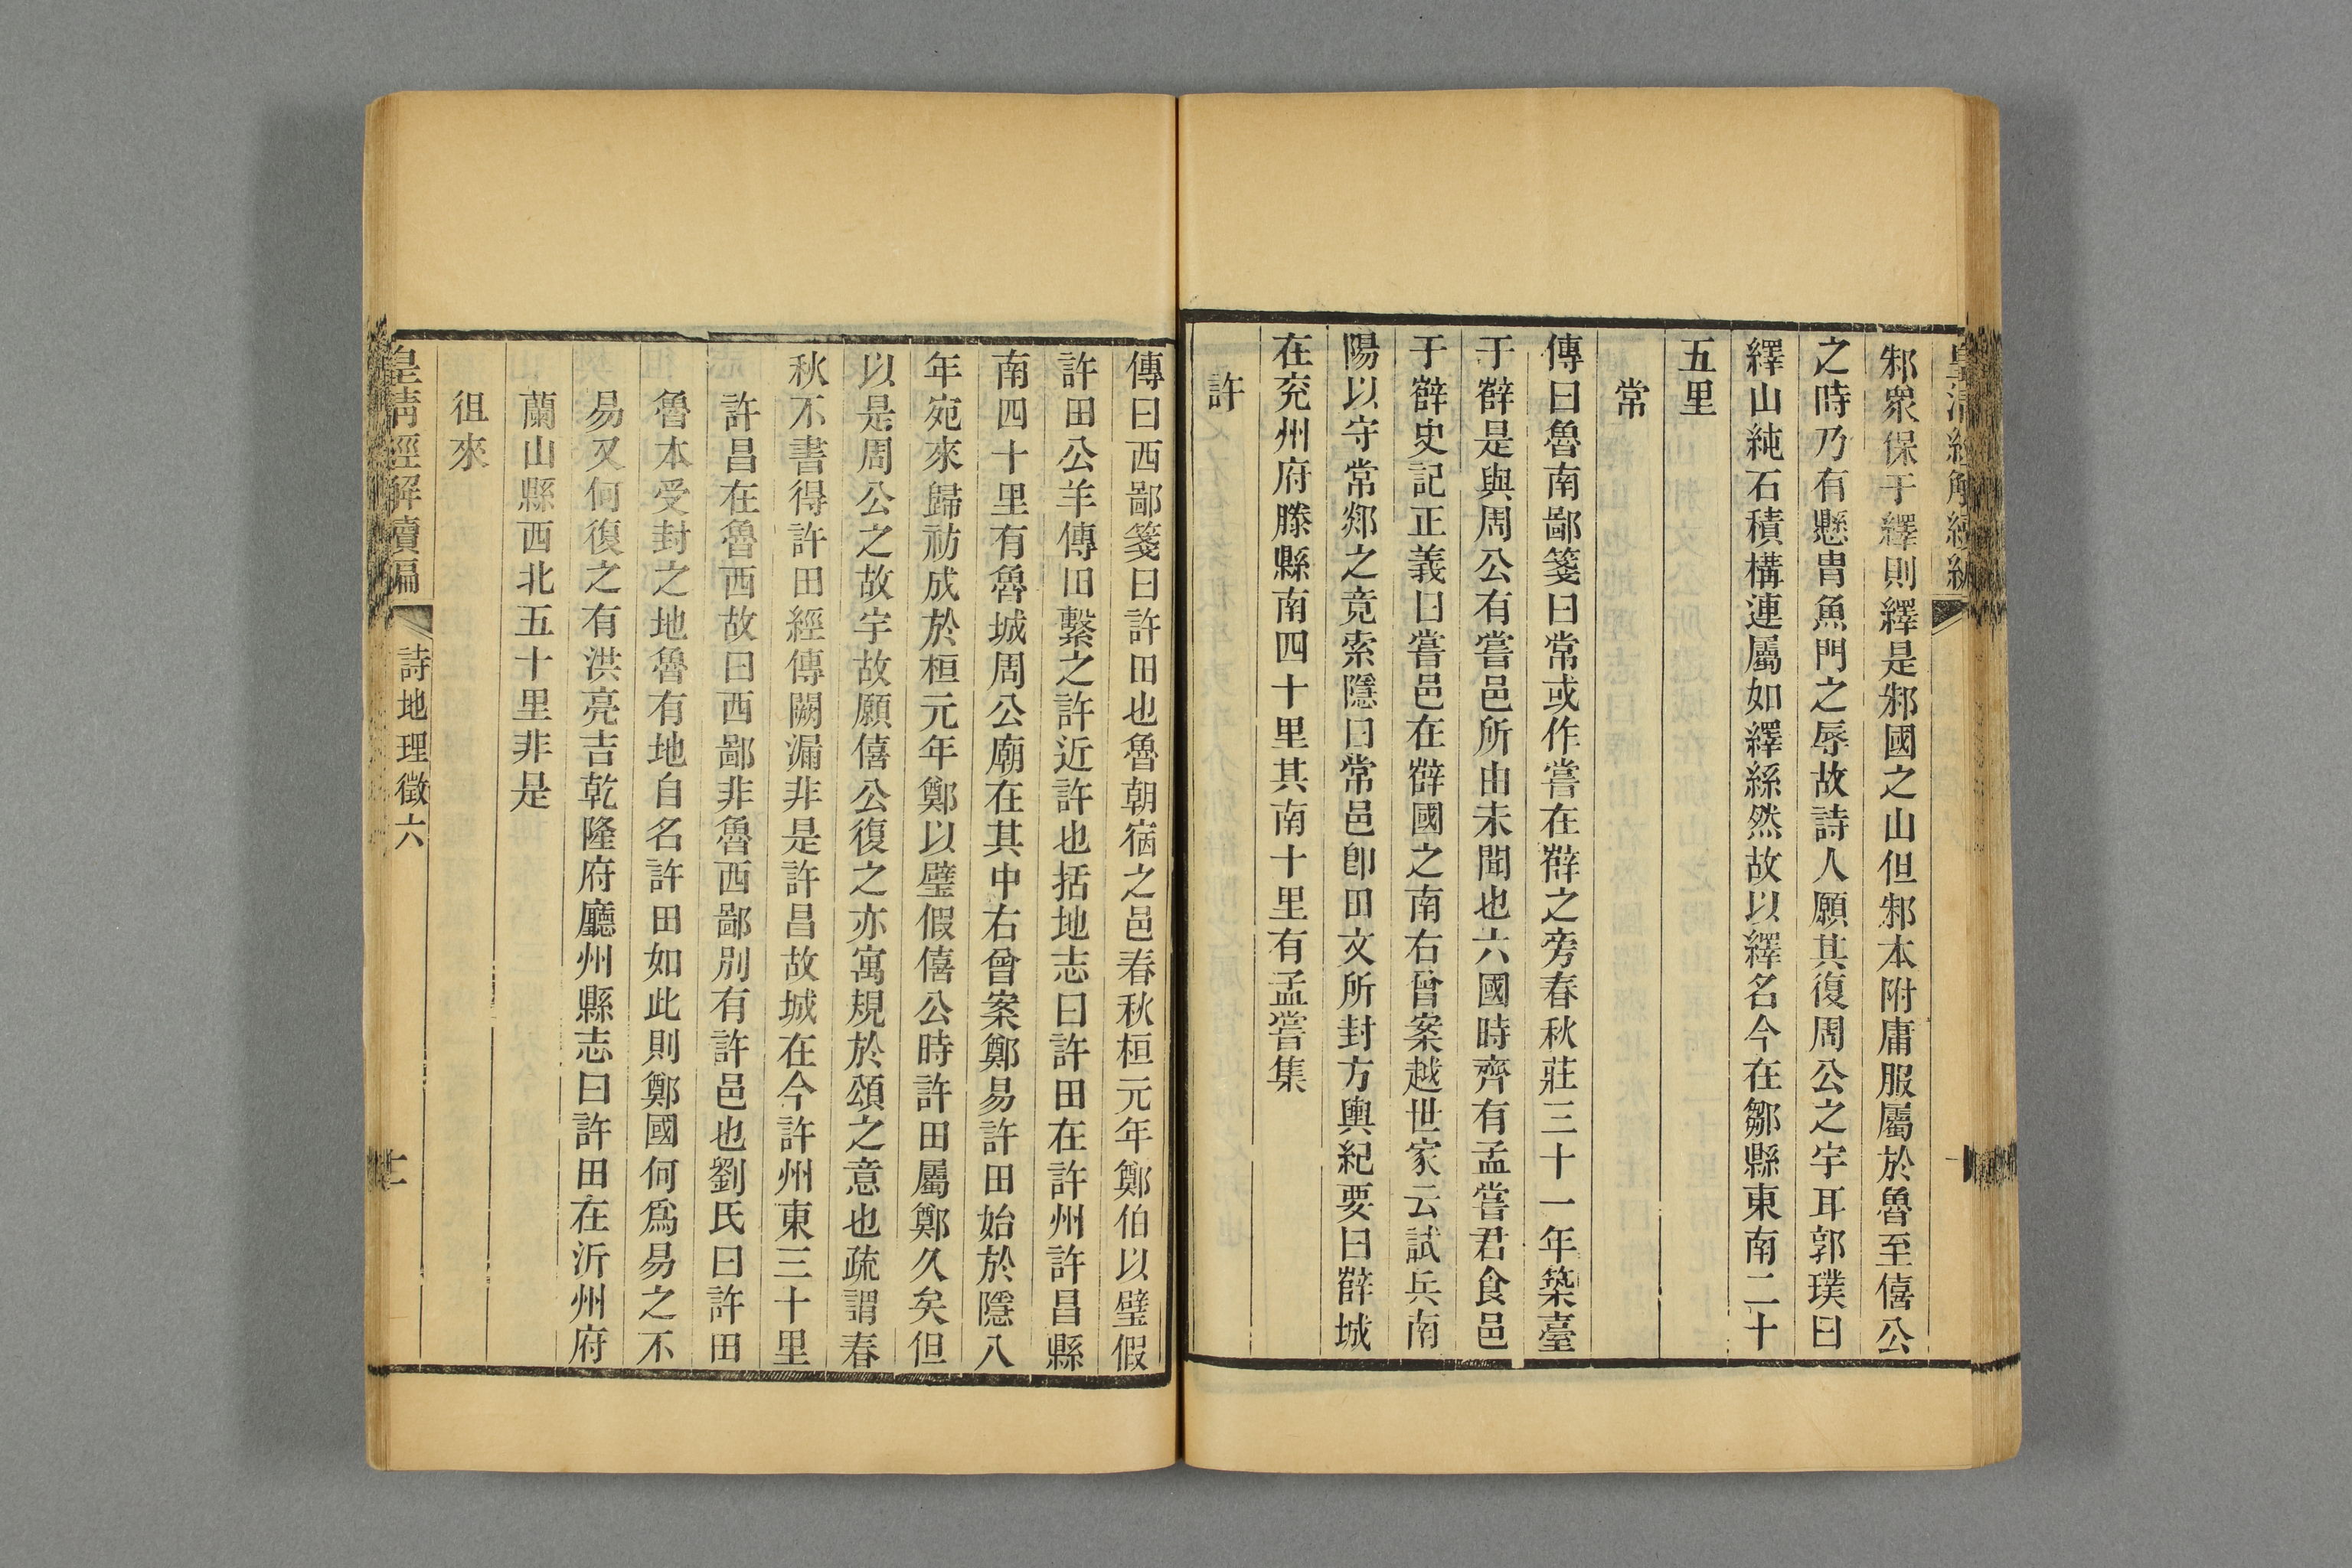 邾衆保于繹則繹是邾國之山但邾本附庸服屬於魯至僖公
之時乃有懸胄魚門之辱故詩人願其復周公之宇耳郭璞曰
繹山純石積構連屬如繹絲然故以繹名今在鄒縣東南二十
五里
常
傳曰魯南鄙箋曰常或作嘗在薛之旁春秋莊三十一年築臺
于薛是與周公有嘗邑所由未聞也六國時齊有孟嘗君食邑
于薛史記正義曰嘗邑在薛國之南右曾案越世家云試兵南
陽以守常郯之竟索隱曰常邑卽田文所封方輿紀要曰薛城
在兖州府滕縣南四十里其南十里有孟嘗集
許
傳曰西鄙箋曰許田也魯朝宿之邑春秋桓元年鄭伯以璧假
許田公羊傳曰繫之許近許也括地志曰許田在許州許昌縣
南四十里有魯城周公廟在其中右曾案鄭易許田始於隱八
年宛來歸祊成於桓元年鄭以璧假僖公時許田屬鄭久矣但
以是周公之故宇故願僖公復之亦寓規於頌之意也疏謂春
秋不書得許田經傳闕漏非是許昌故城在今許州東三十里
許昌在魯西故曰西鄙非魯西鄙別有許邑也劉氏曰許田
魯本受封之地魯有地自名許田如此則鄭國何爲易之不
易又何復之有洪亮吉乾隆府廳州縣志曰許田在沂州府
蘭山縣西北五十里非是
徂來
皇清經解續編
詩地理徵六